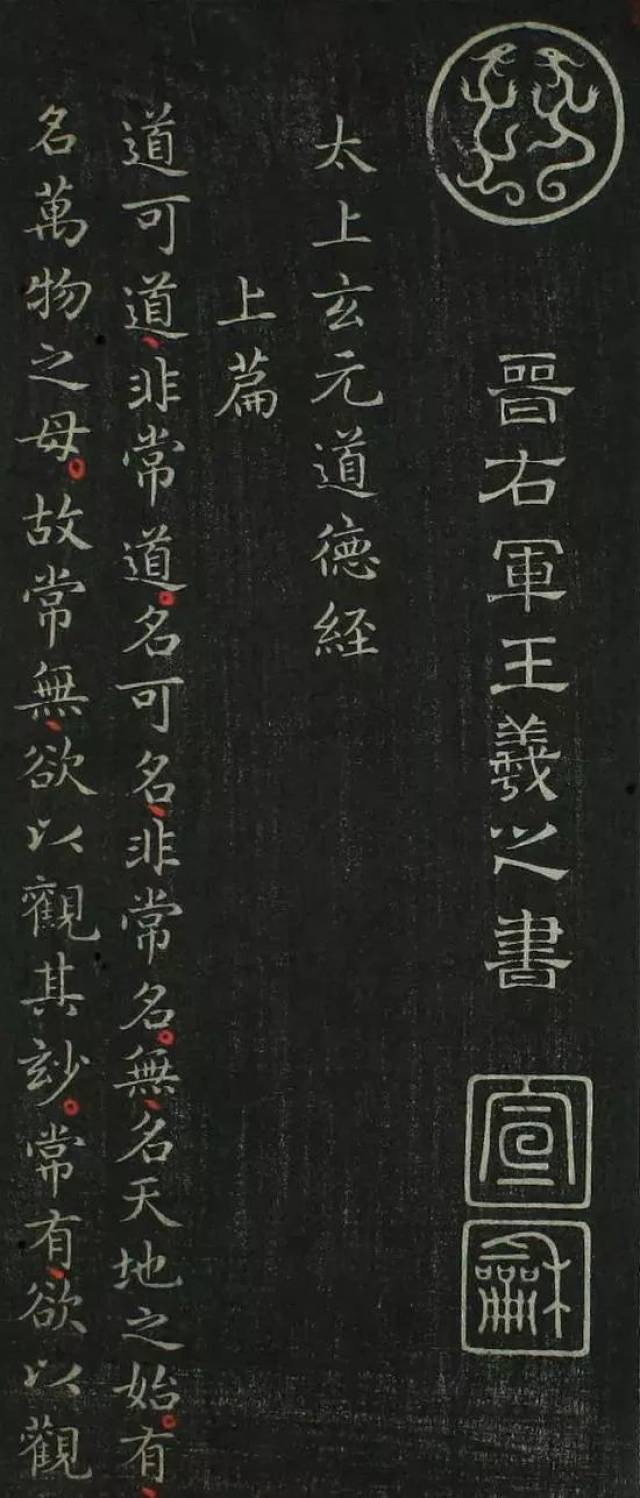 晉右軍王羲之書
宣
龢
太上玄元道德経
上篇
道可道、非常道。名可名、非常名。無、名天地之始。有、
名萬物之母。故常無、欲以觀其玅。常有、欲以觀